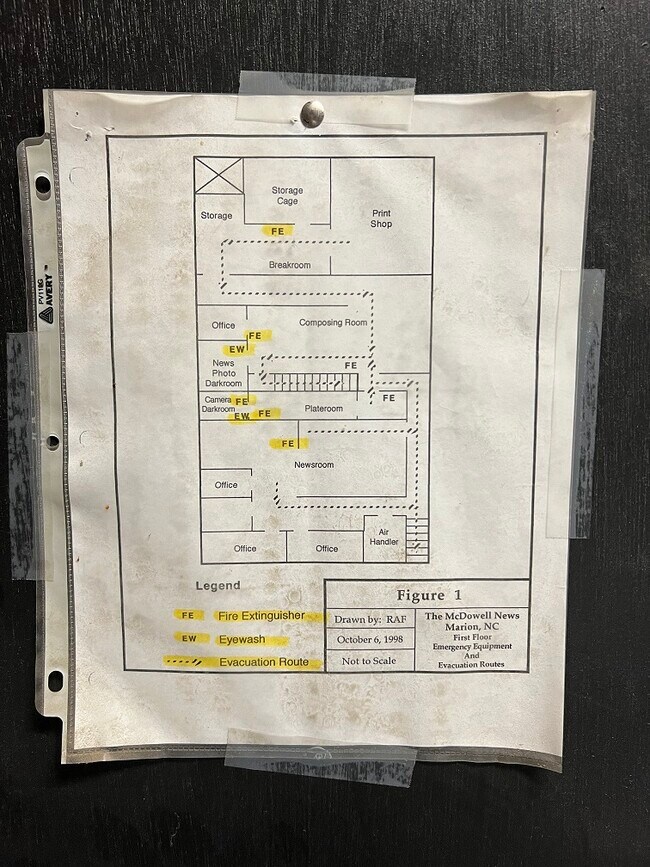 PV119G
AVERY™
Storage
Cage
Storage
Print
Shop
FE
Breakroom
Office
Composing Room
FE
EW
News
Photo
Darkroom
FE
Camera
Darkroom
FE
EW
FE
Plateroom
FE
FE
Newsroom
Office
Office
Office
Air
Handler
Legend
FE Fire Extinguisher
EW Eyewash
Evacuation Route
Figure 1
Drawn by: RAF
October 6, 1998
Not to Scale
The McDowell News
Marion, NC
First Floor
Emergency Equipment
And
Evacuation Routes